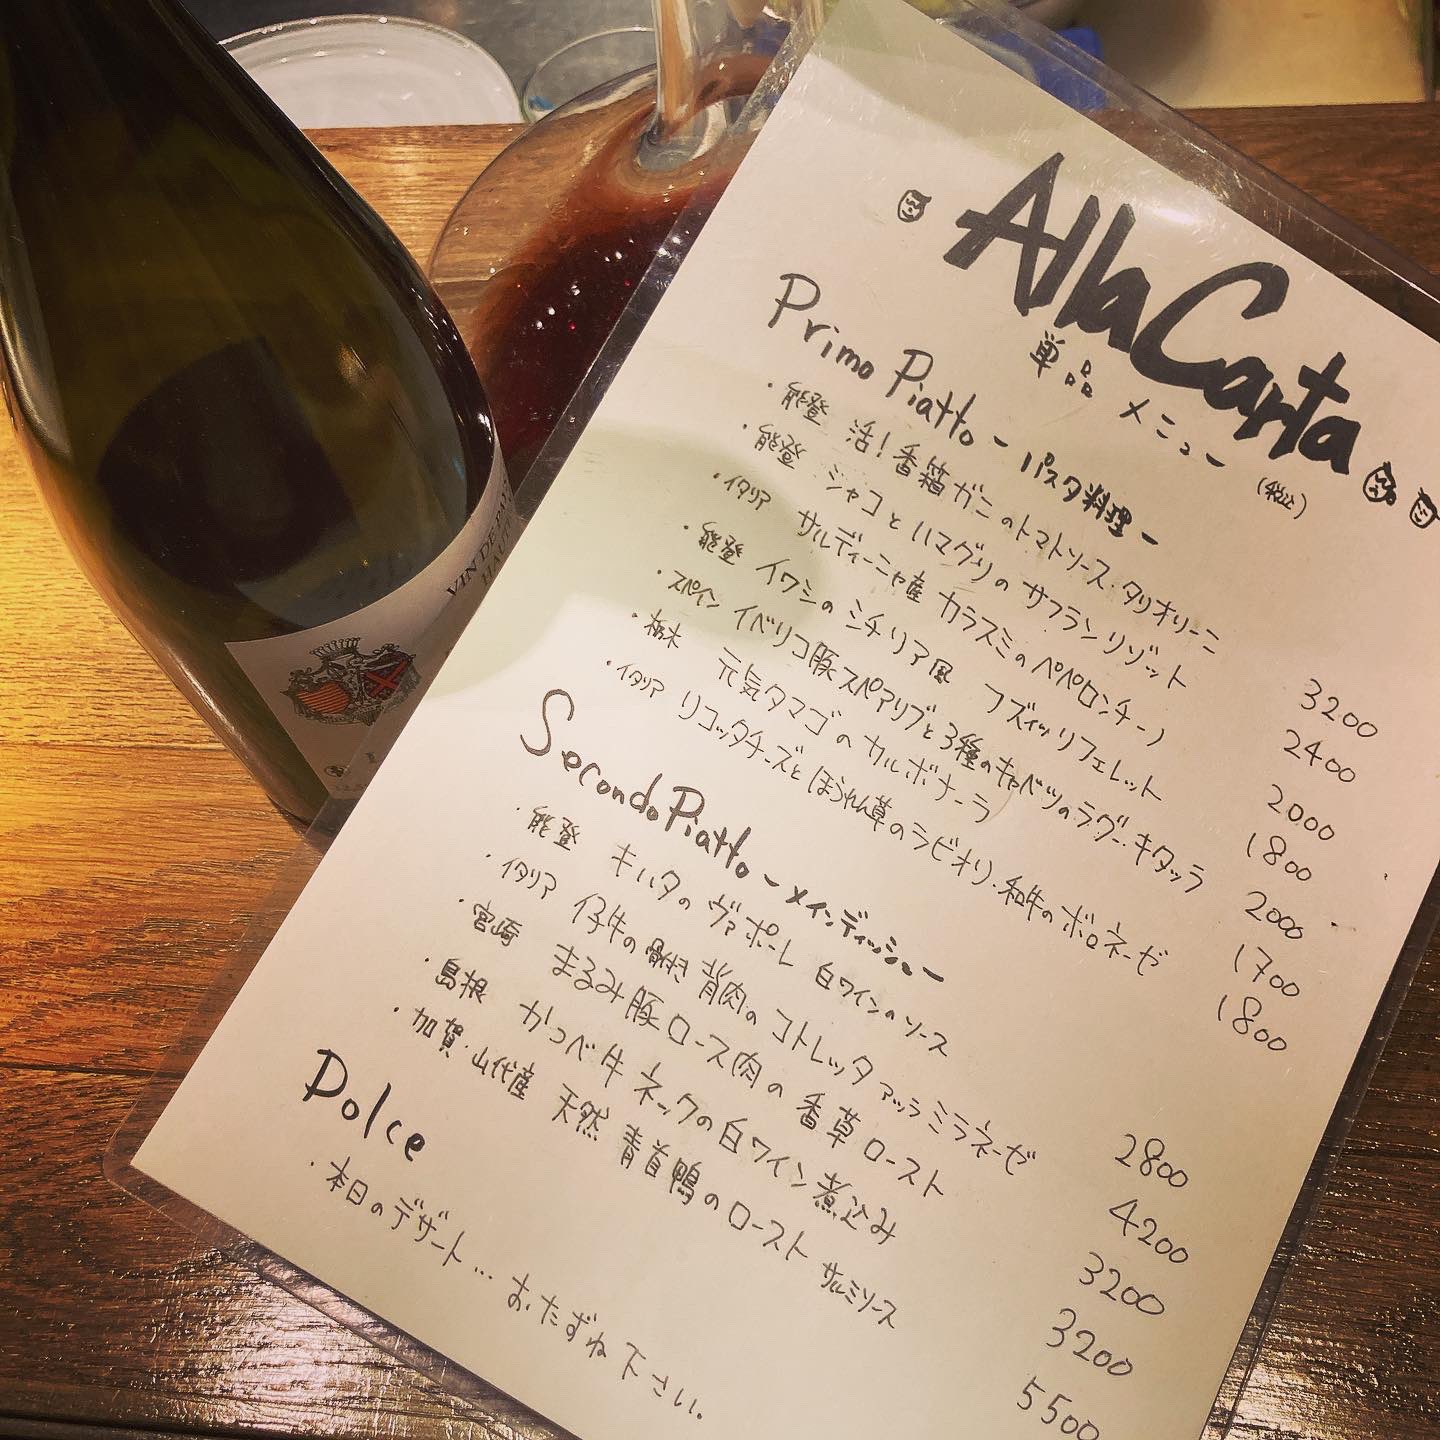 Alla Carta
単品メニュー (税込)
Primo Piatto ー パスタ料理 ー
・能登 活!香箱ガニのトマトソース・タリオリーニ 3200
・能登 シャコとハマグリのサフランリゾット 2400
・イタリア サルディーニャ産 カラスミのペペロンチーノ 2000
・能登 イワシのシチリア風 フズィッリフェレット 1800
・スペイン イベリコ豚スペアリブと3種のキャベツのラグー・キタッラ 2000
・栃木 元気タマゴのカルボナーラ 1700
・イタリア リコッタチーズとほうれん草のラビオリ・和牛のボロネーゼ 1800
Secondo Piatto ー メインディッシュ ー
・能登 キハタのヴァポーレ 白ワインのソース 2800
・イタリア 仔牛の骨付き背肉のコトレッタ アッラミラネーゼ 4200
・宮崎 まるみ豚ロース肉の香草ロースト 3200
・島根 かつべ牛ネックの白ワイン煮込み 3200
・加賀・山代産 天然 青首鴨のロースト サルミソース 5500
Dolce
・本日のデザート… おたずね下さい。
VIN DE PAY
HAUT